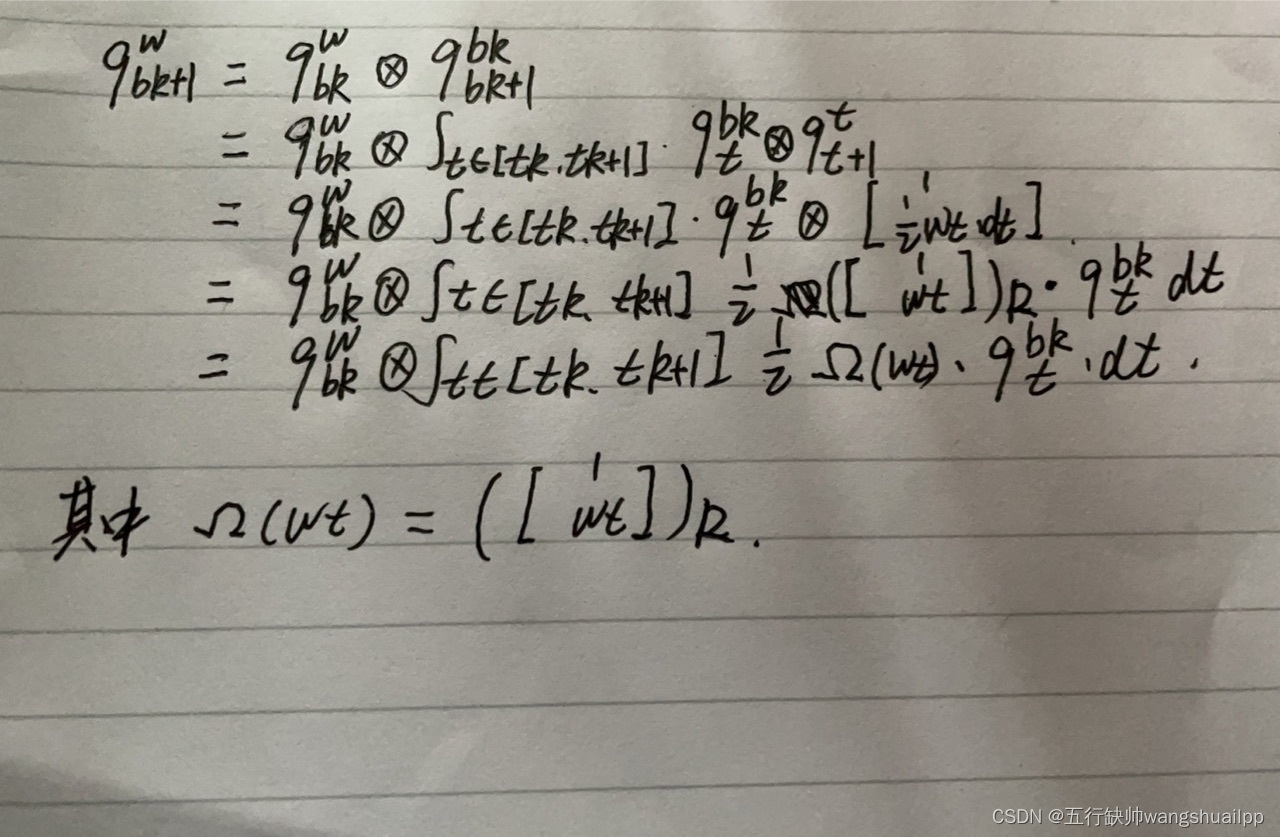 q^w_{bk+1} = q^w_{bk} ⊗ q^{bk}_{bk+1}
= q^w_{bk} ⊗ ∫_{t∈[tk,tk+1]} · q^{bk}_t ⊗ q^t_{t+1}
= q^w_{bk} ⊗ ∫_{t∈[tk,tk+1]} · q^{bk}_t ⊗ [ 1 ; 1/2 wt·dt ].
= q^w_{bk} ⊗ ∫ t∈[tk, tk+1] 1/2 ([ 1 ; wt ])_R · q^{bk}_t dt
= q^w_{bk} ⊗ ∫_{t∈[tk, tk+1]} 1/2 Ω(wt) · q^{bk}_t · dt .
其中 Ω(wt) = ([ 1 ; wt ])_R .
CSDN @五行缺帅wangshuailpp